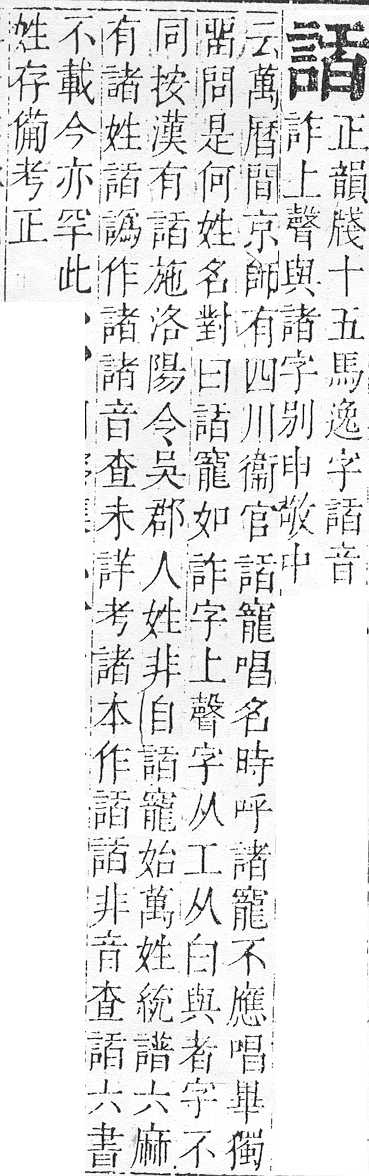 䛽
正韻牋十五馬逸字䛽音
詐上聲與諸字別申敬中
云萬曆間京師有四川衞官䛽寵唱名時呼諸寵不應唱畢獨
畱問是何姓名對曰䛽寵如詐字上聲字从工从白與者字不
同按漢有䛽施洛陽令吳郡人姓非自䛽寵始萬姓統譜六麻
有諸姓䛽譌作諸諸音查未詳考諸本作䛽䛽非音查䛽六書
不載今亦罕此
姓存備考正